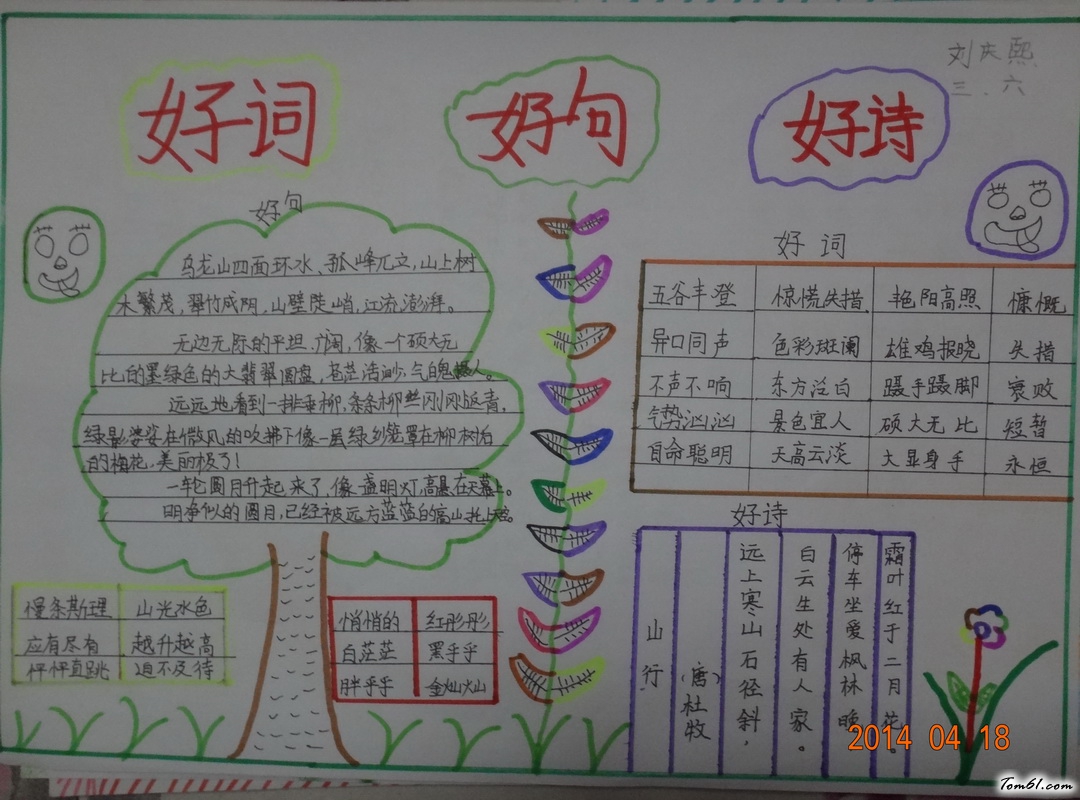 刘庆熙
三、六
好词
好句
好诗
好句
乌龙山四面环水、孤峰兀立,山上树
木繁茂,翠竹成阴,山壁陡峭,江流澎湃。
无边无际的平坦、广阔,像一个硕大无
比的墨绿色的大翡翠圆盘,苍茫浩渺,气魄撼人。
远远地看到一排垂柳,条条柳丝刚刚返青,
绿影婆娑在微风的吹拂下像一层绿纱笼罩在柳树后
的梅花,美丽极了!
一轮圆月升起来了,像一盏明灯,高悬在天幕上。
明净似的圆月,已经被远方蓝蓝的高山托上天空。
好词
五谷丰登 惊慌失措 艳阳高照 慷慨
异口同声 色彩斑阑 雄鸡报晓 失措
不声不响 东方泛白 蹑手蹑脚 衰败
气势汹汹 景色宜人 硕大无比 短暂
自命聪明 天高云淡 大显身手 永恒
慢条斯理 山光水色
应有尽有 越升越高
怦怦直跳 迫不及待
悄悄的 红彤彤
白茫茫 黑乎乎
胖乎乎 金灿灿
好诗
山行
(唐)杜牧
远上寒山石径斜,
白云生处有人家。
停车坐爱枫林晚
霜叶红于二月花。
2014 04 18
Tom61.com